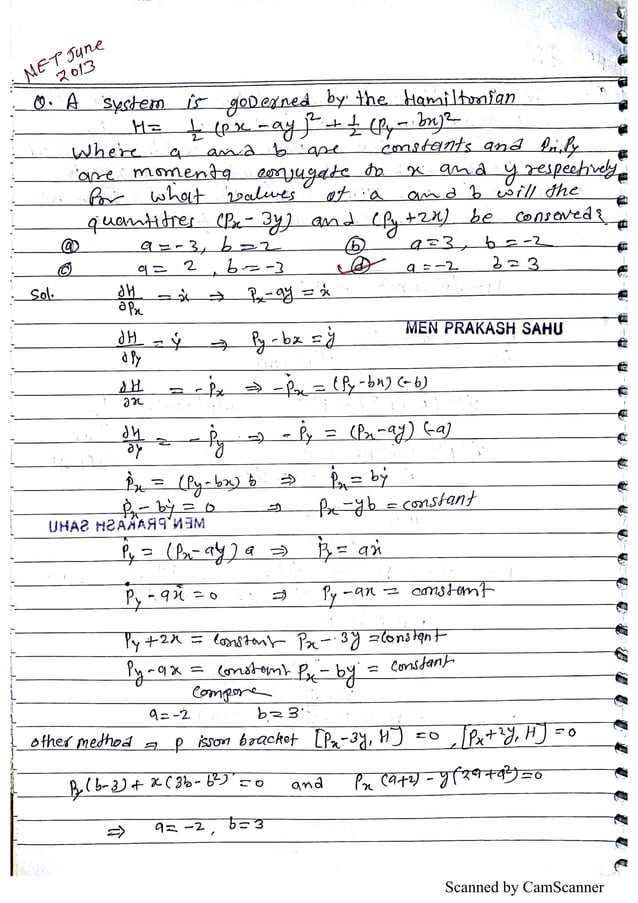 NET June
2013
Q. A system is goverxned by the Hamiltonian
H= ½ (Px - ay)² + ½ (Py - bx)²
Where a and b are constants and Px, Py
are momenta conjugate to x and y respectively
for what values of a and b will the
quantitres (Px - 3y) and (Py + 2x) be conserved?
(a) a = -3, b = 2 (b) a = 3, b = -2
(c) a = 2, b = -3 (d) a = -2 b = 3
Sol. ∂H/∂Px = ẋ ⇒ Px - ay = ẋ
MEN PRAKASH SAHU
∂H/∂Py = ẏ ⇒ Py - bx = ẏ
∂H/∂x = -Ṗx ⇒ -Ṗx = (Py - bx)(-b)
∂H/∂y = -Ṗy ⇒ -Ṗy = (Px - ay)(-a)
Ṗx = (Py - bx) b ⇒ Ṗx = bẏ
Ṗx - bẏ = 0 ⇒ Px - yb = constant
MEN PRAKASH SAHU
Ṗy = (Px - ay) a ⇒ Ṗy = aẋ
Ṗy - aẋ = 0 ⇒ Py - ax = constant
Py + 2x = constant Px - 3y = constant
Py - ax = constant Px - by = constant
compare
a = -2 b = 3
other method ⇒ p isson bracket [Px - 3y, H] = 0, [Px + 2y, H] = 0
Py (b - 3) + x (3b - b²) = 0 and Px (a + 2) - y (2a + a²) = 0
⇒ a = -2, b = 3
Scanned by CamScanner